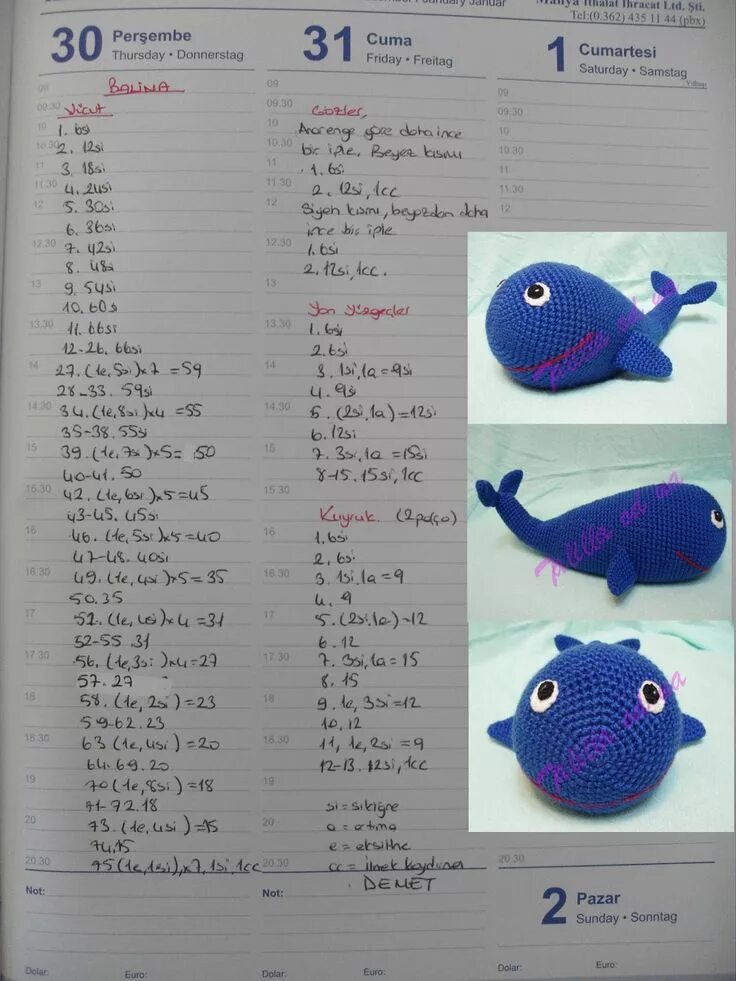 Manya İthalat İhracat Ltd. Şti.
Tel:(0.362) 435 11 44 (pbx)
30 Perşembe
Thursday • Donnerstag
BALİNA
Vücut
1. 6si
2. 12si
3. 18si
4. 24si
5. 30si
6. 36si
7. 42si
8. 48si
9. 54si
10. 60si
11. 66si
12-26. 66si
27. (1e, 5si)x7 = 59
28-33. 59si
34. (1e, 8si)x4 = 55
35-38. 55si
39. (1e, 7si)x5 = 50
40-41. 50
42. (1e, 6si)x5 = 45
43-45. 45si
46. (1e, 5si)x5 = 40
47-48. 40si
49. (1e, 4si)x5 = 35
50. 35
52. (1e, 4si)x4 = 31
52-55. 31
56. (1e, 3si)x4 = 27
57. 27
58. (1e, 2si) = 23
59-62. 23
63 (1e, 4si) = 20
64. 69. 20
70 (1e, 8si) = 18
71-72. 18
73. (1e, 4si) = 15
74. 15
75 (1e, 1si), x7, 1si, 1cc
Not:
Dolar: Euro:
31 Cuma
Friday • Freitag
Gözler,
Anarenge göre daha ince
bir iple. Beyaz kısmı
1. 6si
2. 12si, 1cc
Siyah kısmı, beyazdan daha
ince bir iple
1. 6si
2. 12si, 1cc.
Yan yüzgeçler
1. 6si
2. 6si
3. 1si, 1a = 9si
4. 9si
5. (2si, 1a) = 12si
6. 12si
7. 3si, 1a = 15si
8-15. 15si, 1cc
Kuyruk (2 parça)
1. 6si
2. 6si
3. 1si, 1a = 9
4. 9
5. (2si, 1a) = 12
6. 12
7. 3si, 1a = 15
8. 15
9. 1e, 3si = 12
10. 12
11, 1e, 2si = 9
12-13. 12si, 1cc
si = sıkiğne
a = artıma
e = eksiltme
cc = ilmek kaydırma
DEMET
Not:
Dolar: Euro:
1 Cumartesi
Saturday • Samstag
2 Pazar
Sunday • Sonntag
Dolar: Euro: